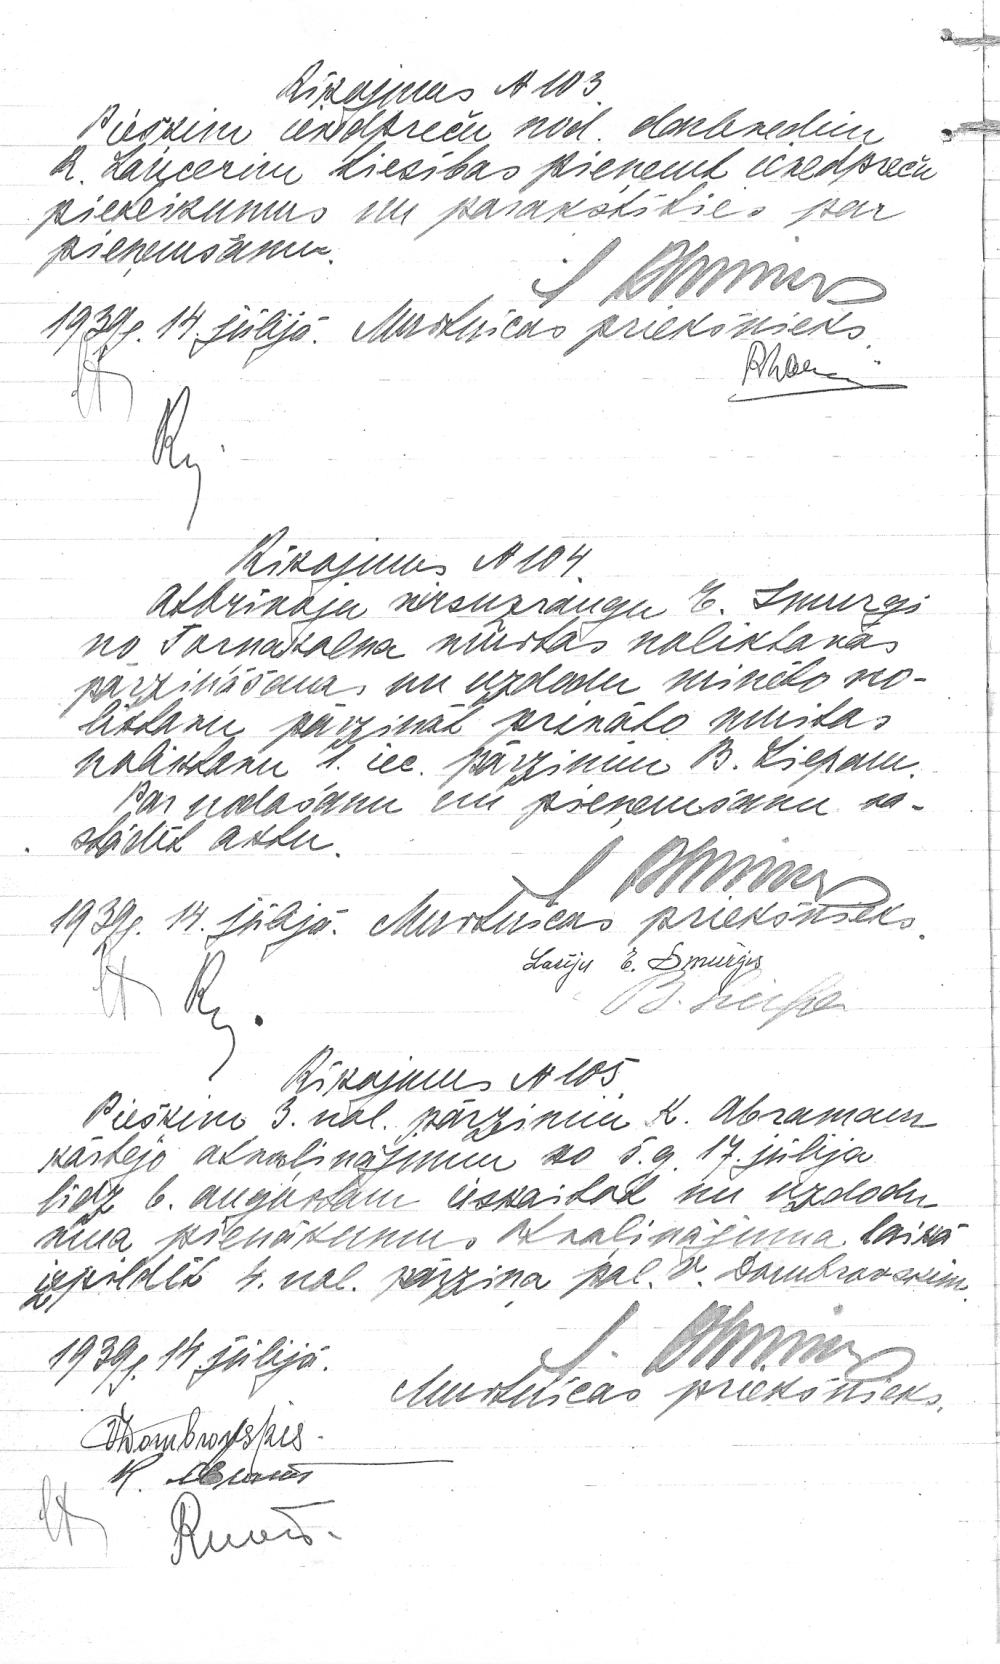 Rīkojums № 103.
Piešķiru ievedpreču nod. darbvedim
R. Lancerim tiesības pieņemt ievedpreču
pieteikumus un parakstīties par
pieņemšanu.
1939g. 14. jūlijā. Muitnīcas priekšnieks.
Rīkojums № 104.
Atbrīvoju virsuzraugu E. Smurģi
no Torņakalna muitas noliktavas
pārzināšanas un uzdodu minēto no-
liktavu pārzināt privāto muitas
noliktavu 1. iec. pārzinim B. Liepam.
Par nodošanu un pieņemšanu sa-
stādīt aktu.
1939g. 14. jūlijā. Muitnīcas priekšnieks.
Lasīju E. Smurģis
B. Liepa
Rīkojums № 105.
Piešķiru 3. nol. pārzinim K. Abramam
kārtējo atvaļinājumu no š.g. 17. jūlija
līdz 6. augustam ieskaitot un uzdodu
viņa pienākumus atvaļinājuma laikā
izpildīt 4. nol. pārziņa pal. V. Dombrovskim.
1939g. 14. jūlijā.
Muitnīcas priekšnieks.
VDombrovskis.
K. Abrams